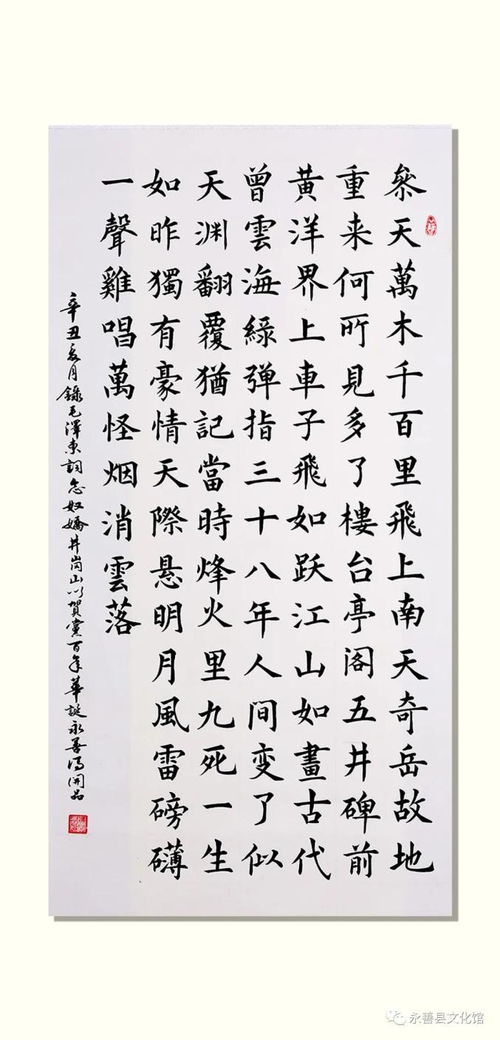 叅天萬木千百里飛上南天奇岳故地
重来何所見多了樓台亭阁五井碑前
黃洋界上車子飛如跃江山如畫古代
曾雲海綠弹指三十八年人间变了似
天渊翻覆猶記當時烽火里九死一生
如昨獨有豪情天際悬明月風雷磅礴
一聲雞唱萬怪烟消雲落
辛丑夏月錄毛澤東詞念奴嬌井崗山以賀黨百年華誕永善馮開品
永善县文化馆